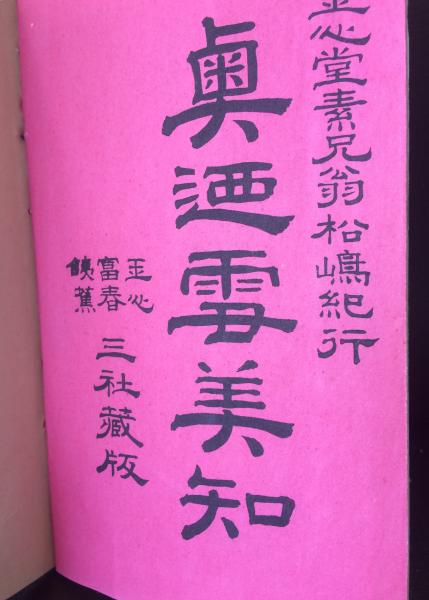 正心堂素兄翁松嶋紀行
奥迺雪美知
正心
富春
蕉
三社藏版